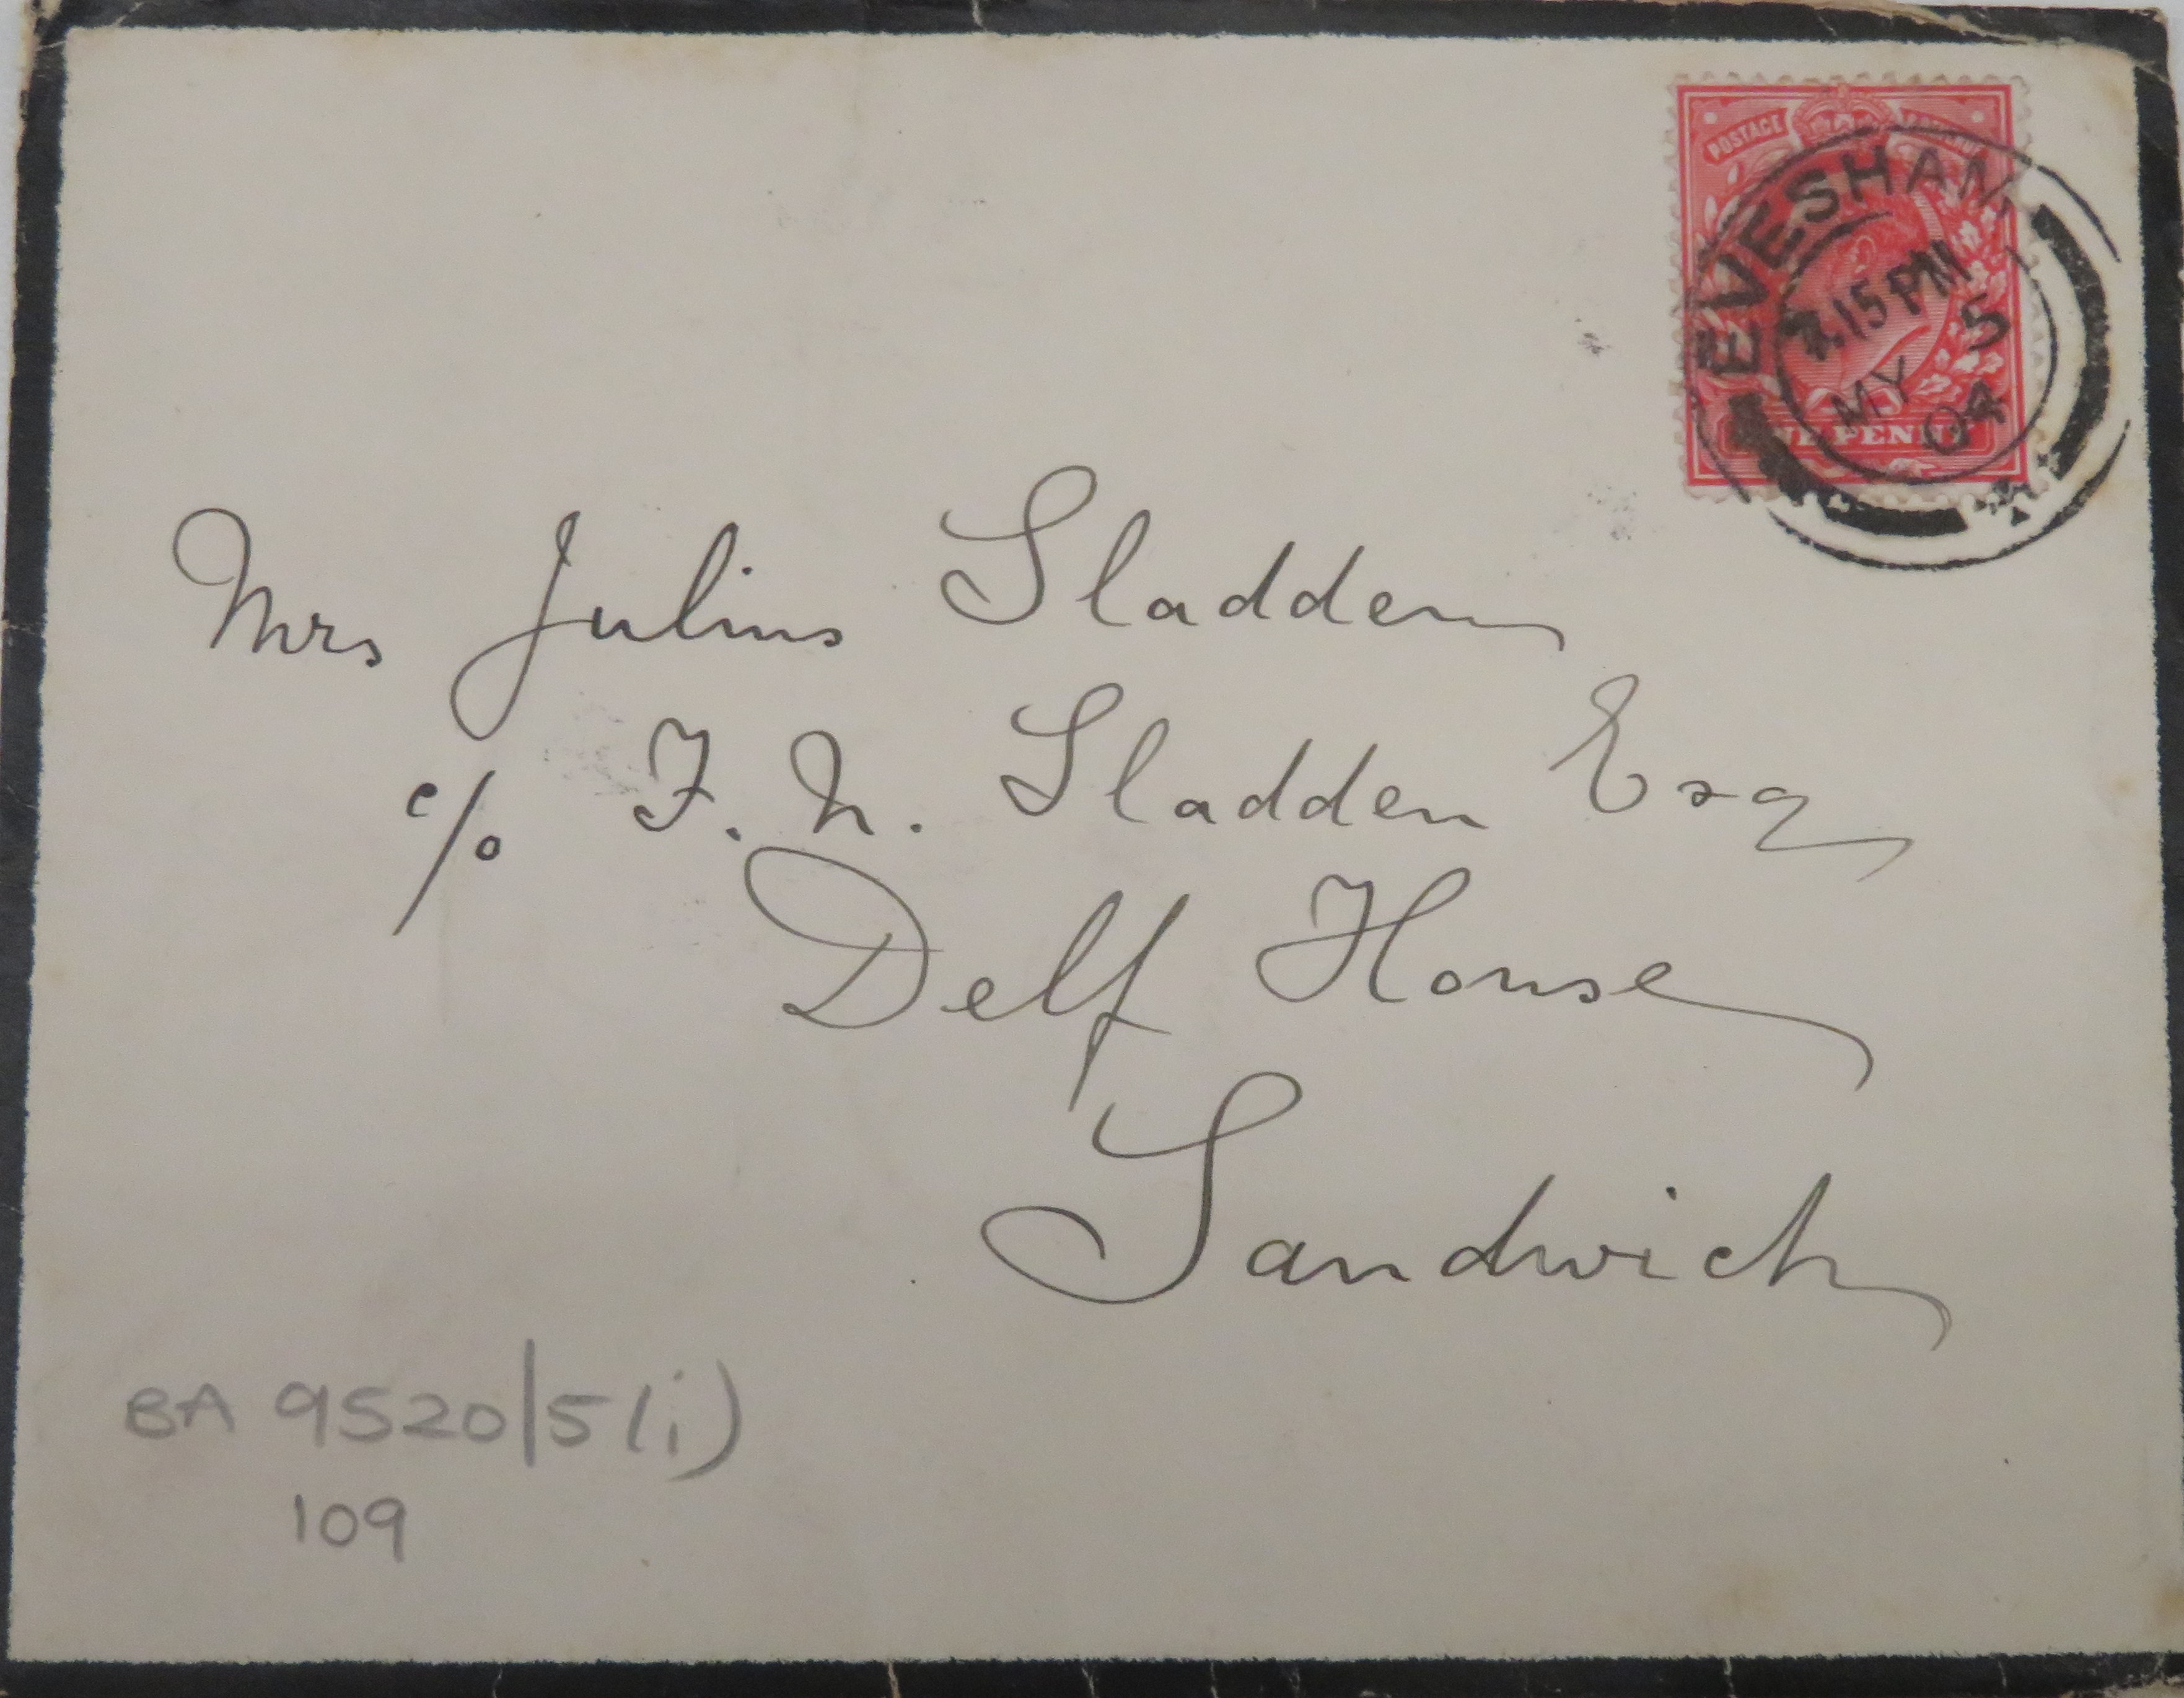 POSTAGE
EVESHAM
15 PM
MY 5
04
ONE PENNY
Mrs Julius Sladden
c/o F. N. Sladden Esq
Delf House
Sandwich
BA 9520/5(i)
109